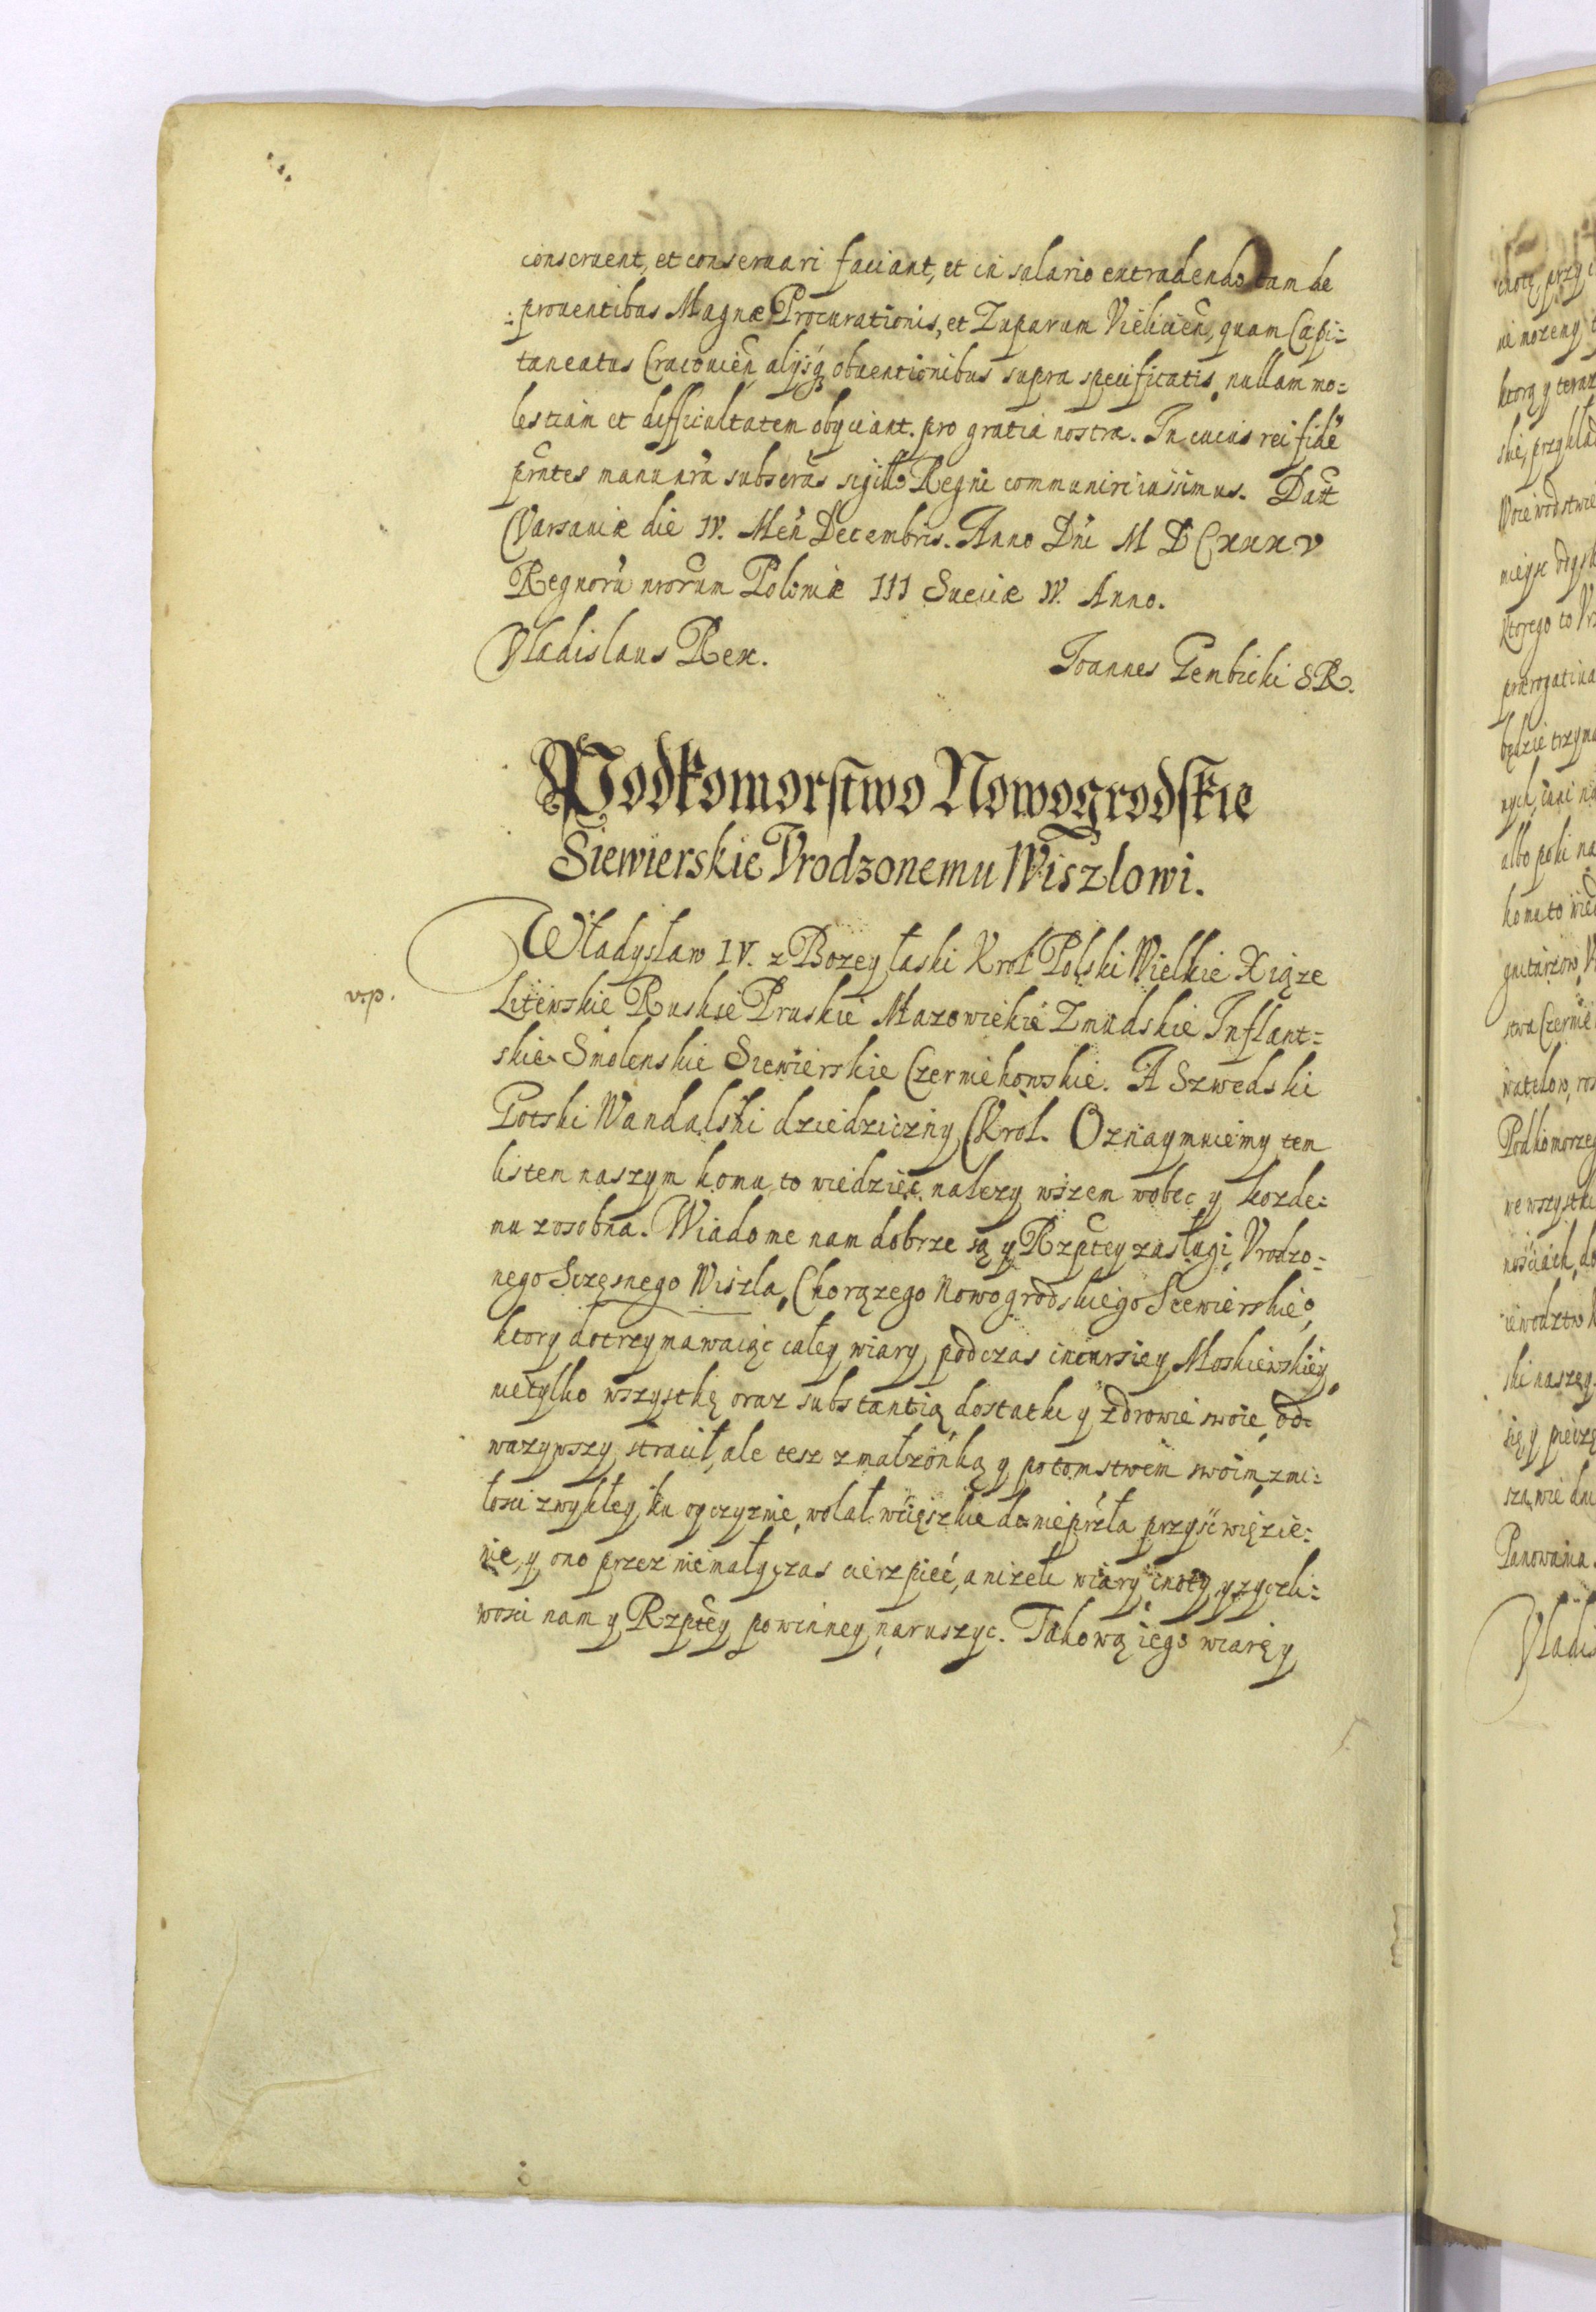 conseruent, et conseruari faciant, et in salario extradendo tam de
prouentibus Magnæ Procurationis, et Zuparum Vielicień, quam Capi=
taneatus Cracouień, alijsq obuentionibus supra specificatis, nullam mo=
lestiam et difficultatem obijciant. pro gratia nostra. In cuius rei fidē
prntes manu nrā subscrās sigillo Regni communiri iussimus. Datt
Varsauiæ die IV. Meń Decembris. Anno Dńi M D CXXXV
Regnorū nrorum Poloniæ III Sueciæ IV. Anno.
Vladislaus Rex.
Ioannes Gembicki SR.
Podkomorstwo Nowogrodskie
Siewierskie Vrodzonemu Wiszlowi.
Władysław IV. z Bozey łaski Krol Polski Wielkie Xiąze
v.p.
Litewskie Ruskie Pruskie Mazowiekie Zmudskie Inflant=
skie Smolenskie Siewierskie Czerniehowskie. A Szwedski
Gotski Wandalski dziedziczny Krol. Oznaymuiemy tem
listem naszym komu to wiedziec nalezy wszem wobec y kozde=
mu zosobna. Wiadome nam dobrze są y Rzptey zasługi Vrodzo=
nego Sczęsnego Wiszla, Chorązego Nowogrodskiego Siewierskie°,
ktory dotrzymawaiąc całey wiary podczas incursiey Moskiewskiey
nietylko wszystkę oraz substantią dostatki y zdrowie swoie od=
wazywszy stracił, ale tesz zmałzonką y potomstwem swoim zmi=
łosci zwykłey ku oyczyznie, wolał wcięszkie do nieprzła przyść więzie=
nie, y ono przez niemały czas cierzpieć, anizeli wiary cnoty y zyczli=
wosci nam y Rzptey powinney naruszyc. Takową iego wiarę y